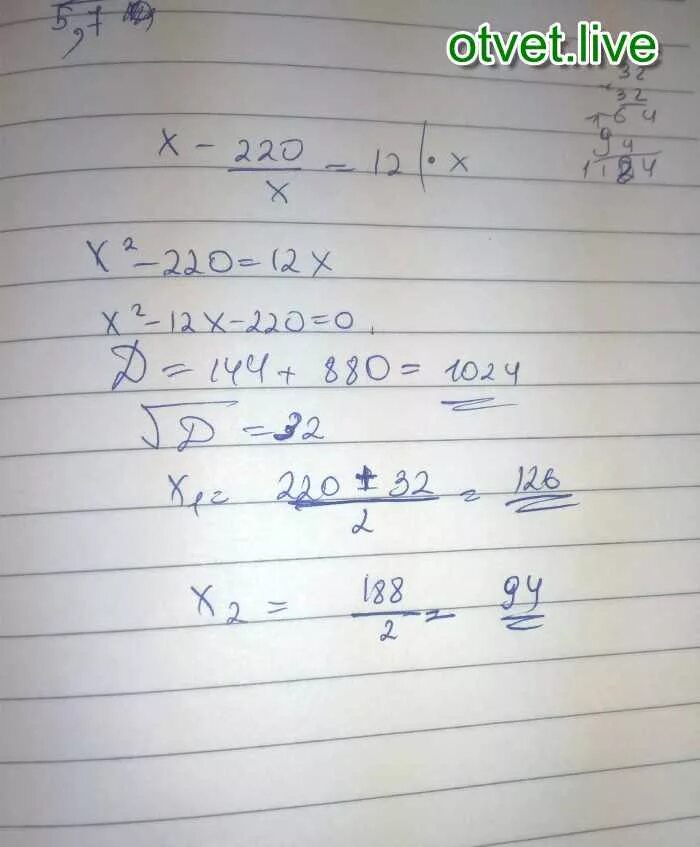 5,7
otvet.live
32
32
164
94
1124
x - 220/x = 12 | · x
x² - 220 = 12x
x² - 12x - 220 = 0
D = 144 + 880 = 1024
√D = 32
x₁ = (220 ± 32)/2 = 126
x₂ = 188/2 = 94